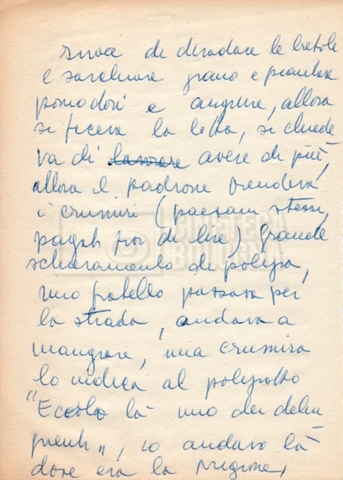 invece di diradare le bietole
e sarchiare grano e piantare
pomodori e angurie, allora
si faceva la lotta, si chiede
va di lavorare avere di più,
allora il padrone prendeva
i crumiri (paesani stessi
pagati poi di lire) grande
schieramento di polizia,
mio fratello passava per
la strada, andava a
mangiare, una crumira
lo indica al poliziotto
"Eccolo là uno dei delin
quenti", io andavo là
dove era la prigione,